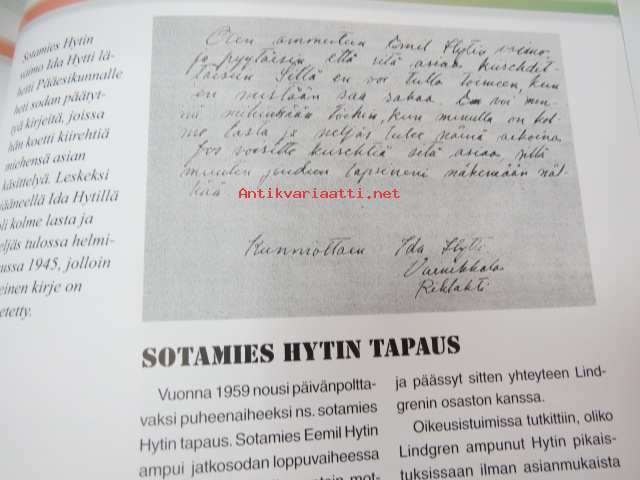 Sotamies Hytin
vaimo Ida Hytti lä-
hetti Pääesikunnalle
heti sodan päätyt-
tyä kirjeitä, joissa
hän koetti kiirehtiä
miehensä asian
käsittelyä. Leskeksi
jääneellä Ida Hytillä
oli kolme lasta ja
neljäs tulossa helmi-
kuussa 1945, jolloin
kirje on
Olen Emil Hytin vaimo
ja pyytäisin että sitä asiaa
Sillä en voi tulla toimeen, kun
en mistään saa rahaa. En voi men-
nä mihinkään töihin, kun minulla on kol-
me lasta ja neljäs tulee näinä aikoina
Jos voisitte sitä asiaa, sillä
muuten joudun lapsineni näkemään näl-
kää
Antikvariaatti.net
Kunnioittaen Ida Hytti
SOTAMIES HYTIN TAPAUS
Vuonna 1959 nousi päivänpoltta-
vaksi puheenaiheeksi ns. sotamies
Hytin tapaus. Sotamies Eemil Hytin
ampui jatkosodan loppuvaiheessa
ja päässyt sitten yhteyteen Lind-
grenin osaston kanssa.
Oikeusistuimissa tutkittiin, oliko
Lindgren ampunut Hytin pikais-
tuksissaan ilman asianmukaista